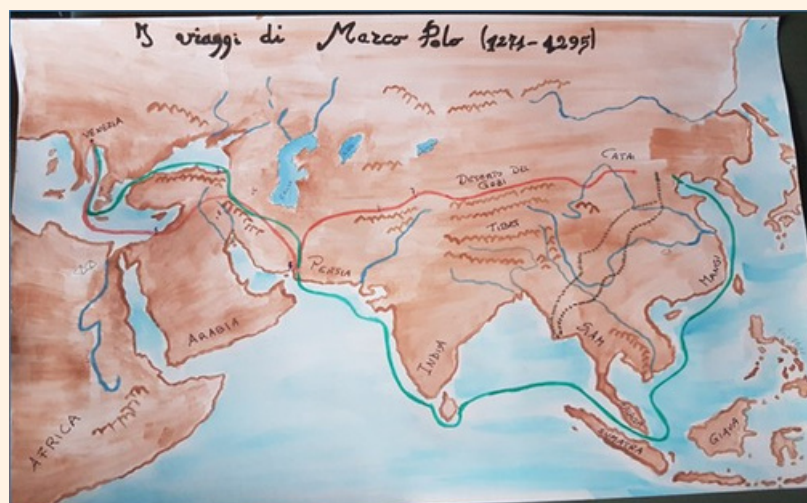 I viaggi di Marco Polo (1271-1295)
VENEZIA
DESERTO DEL
GOBI
CATAI
TIBET
PERSIA
MANGI
ARABIA
INDIA
SIAM
AFRICA
SUMATRA
GIAVA